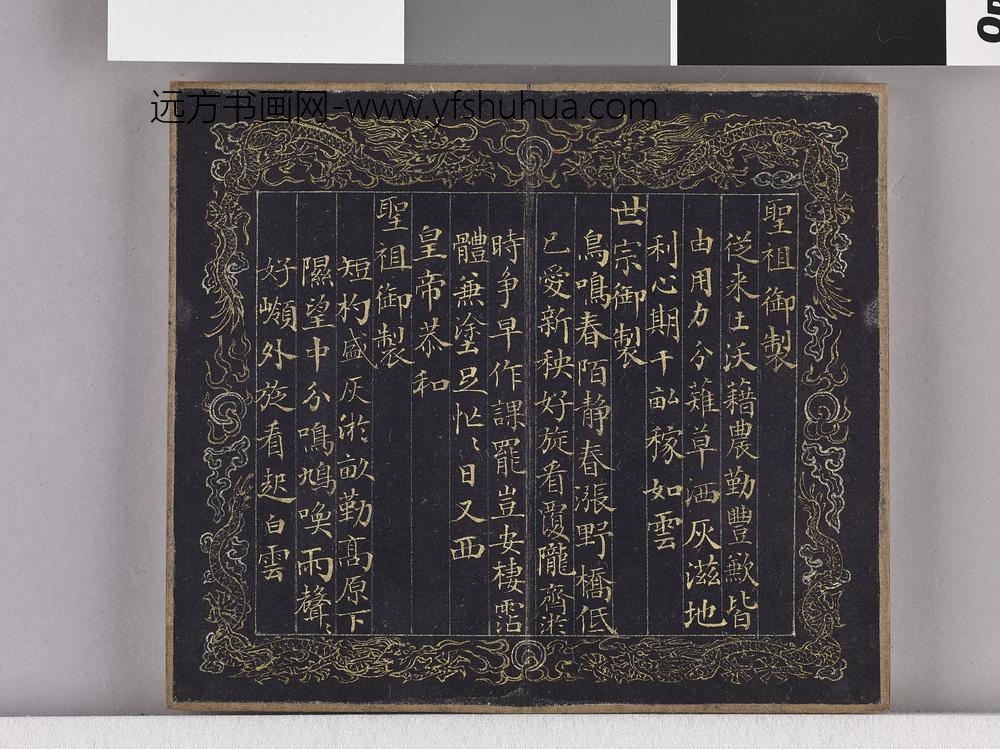 远方书画网-www.yfshuhua.com
聖祖御製
從来土沃藉農勤豐歉皆
由用力分薙草洒灰滋地
利心期千畝稼如雲
世宗御製
鳥鳴春陌静春漲野橋低
已愛新秧好旋看覆隴齊淤
時争早作課罷豈安棲霑
體兼塗足忙〻日又西
皇帝恭和
聖祖御製
短杓盛灰淤畝勤高原下
隰望中分鳴鳩喚雨聲〻
好嶺外旋看起白雲